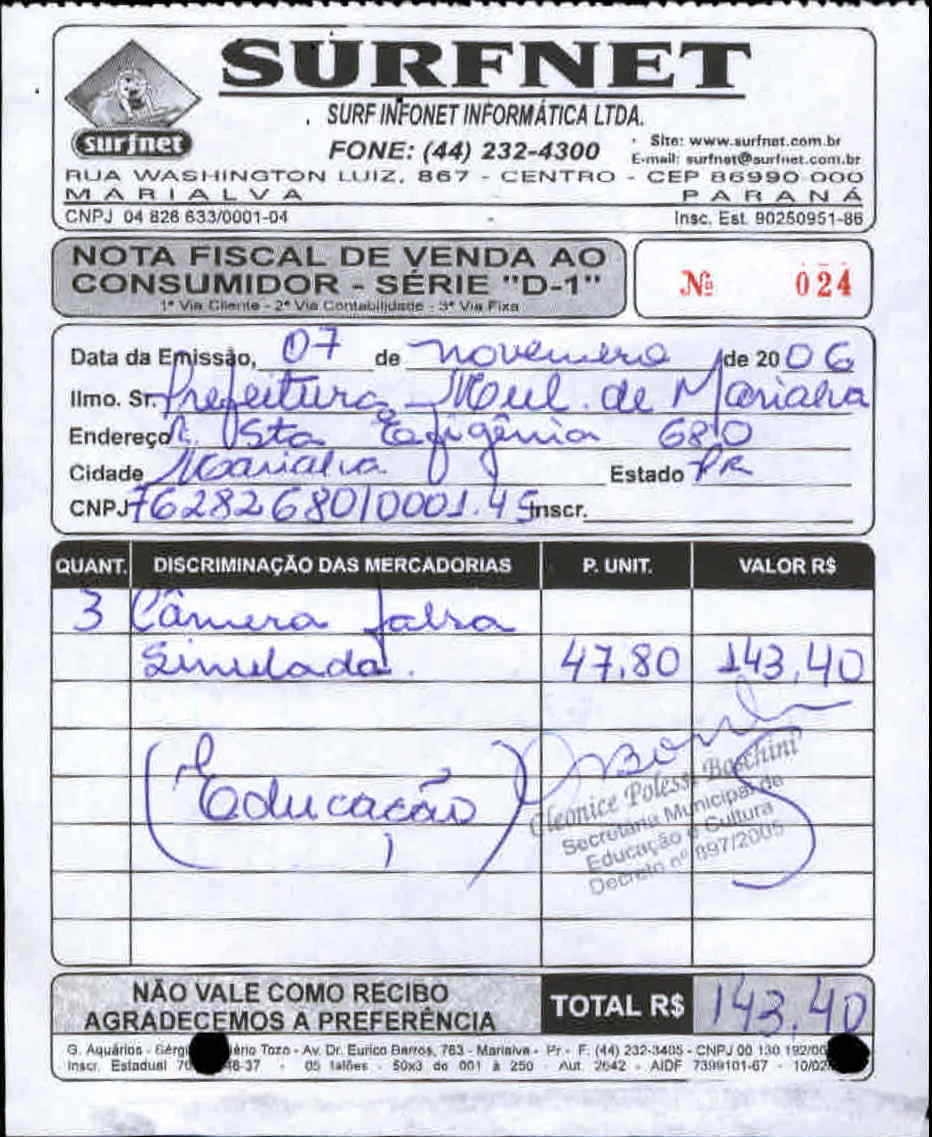 SURFNET
surfnet
SURF INFONET INFORMÁTICA LTDA.
FONE: (44) 232-4300
Site: www.surfnet.com.br
E-mail: surfnet@surfnet.com.br
RUA WASHINGTON LUIZ, 867 - CENTRO - CEP 86990-000
MARIALVA PARANÁ
CNPJ 04 826 633/0001-04 Insc. Est. 90250951-86
NOTA FISCAL DE VENDA AO
CONSUMIDOR - SÉRIE "D-1"
1ª Via Cliente - 2ª Via Contabilidade - 3ª Via Fixa
Nº 024
Data da Emissão, 07 de novembro de 2006
Ilmo. Sr. Prefeitura Mul. de Marialva
Endereço R. Sta Efigênia 680
Cidade Marialva Estado PR
CNPJ 76282680/0001.45 Inscr.
QUANT. DISCRIMINAÇÃO DAS MERCADORIAS P. UNIT. VALOR R$
3 Câmera falsa
Simulada. 47,80 143,40
(Educação)
Cleonice Polessi Boschini
Secretária Municipal de
Educação e Cultura
Decreto nº 897/2005
NÃO VALE COMO RECIBO
AGRADECEMOS A PREFERÊNCIA
TOTAL R$ 143,40
G. Aquários - Tozo - Av. Dr. Eurico Barros, 763 - Marialva - Pr - F. (44) 232-3405 - CNPJ 00 130 192/00
Inscr. Estadual 46-37 - 05 talões - 50x3 de 001 à 250 - Aut. 2642 - AIDF 7399101-67 - 10/02